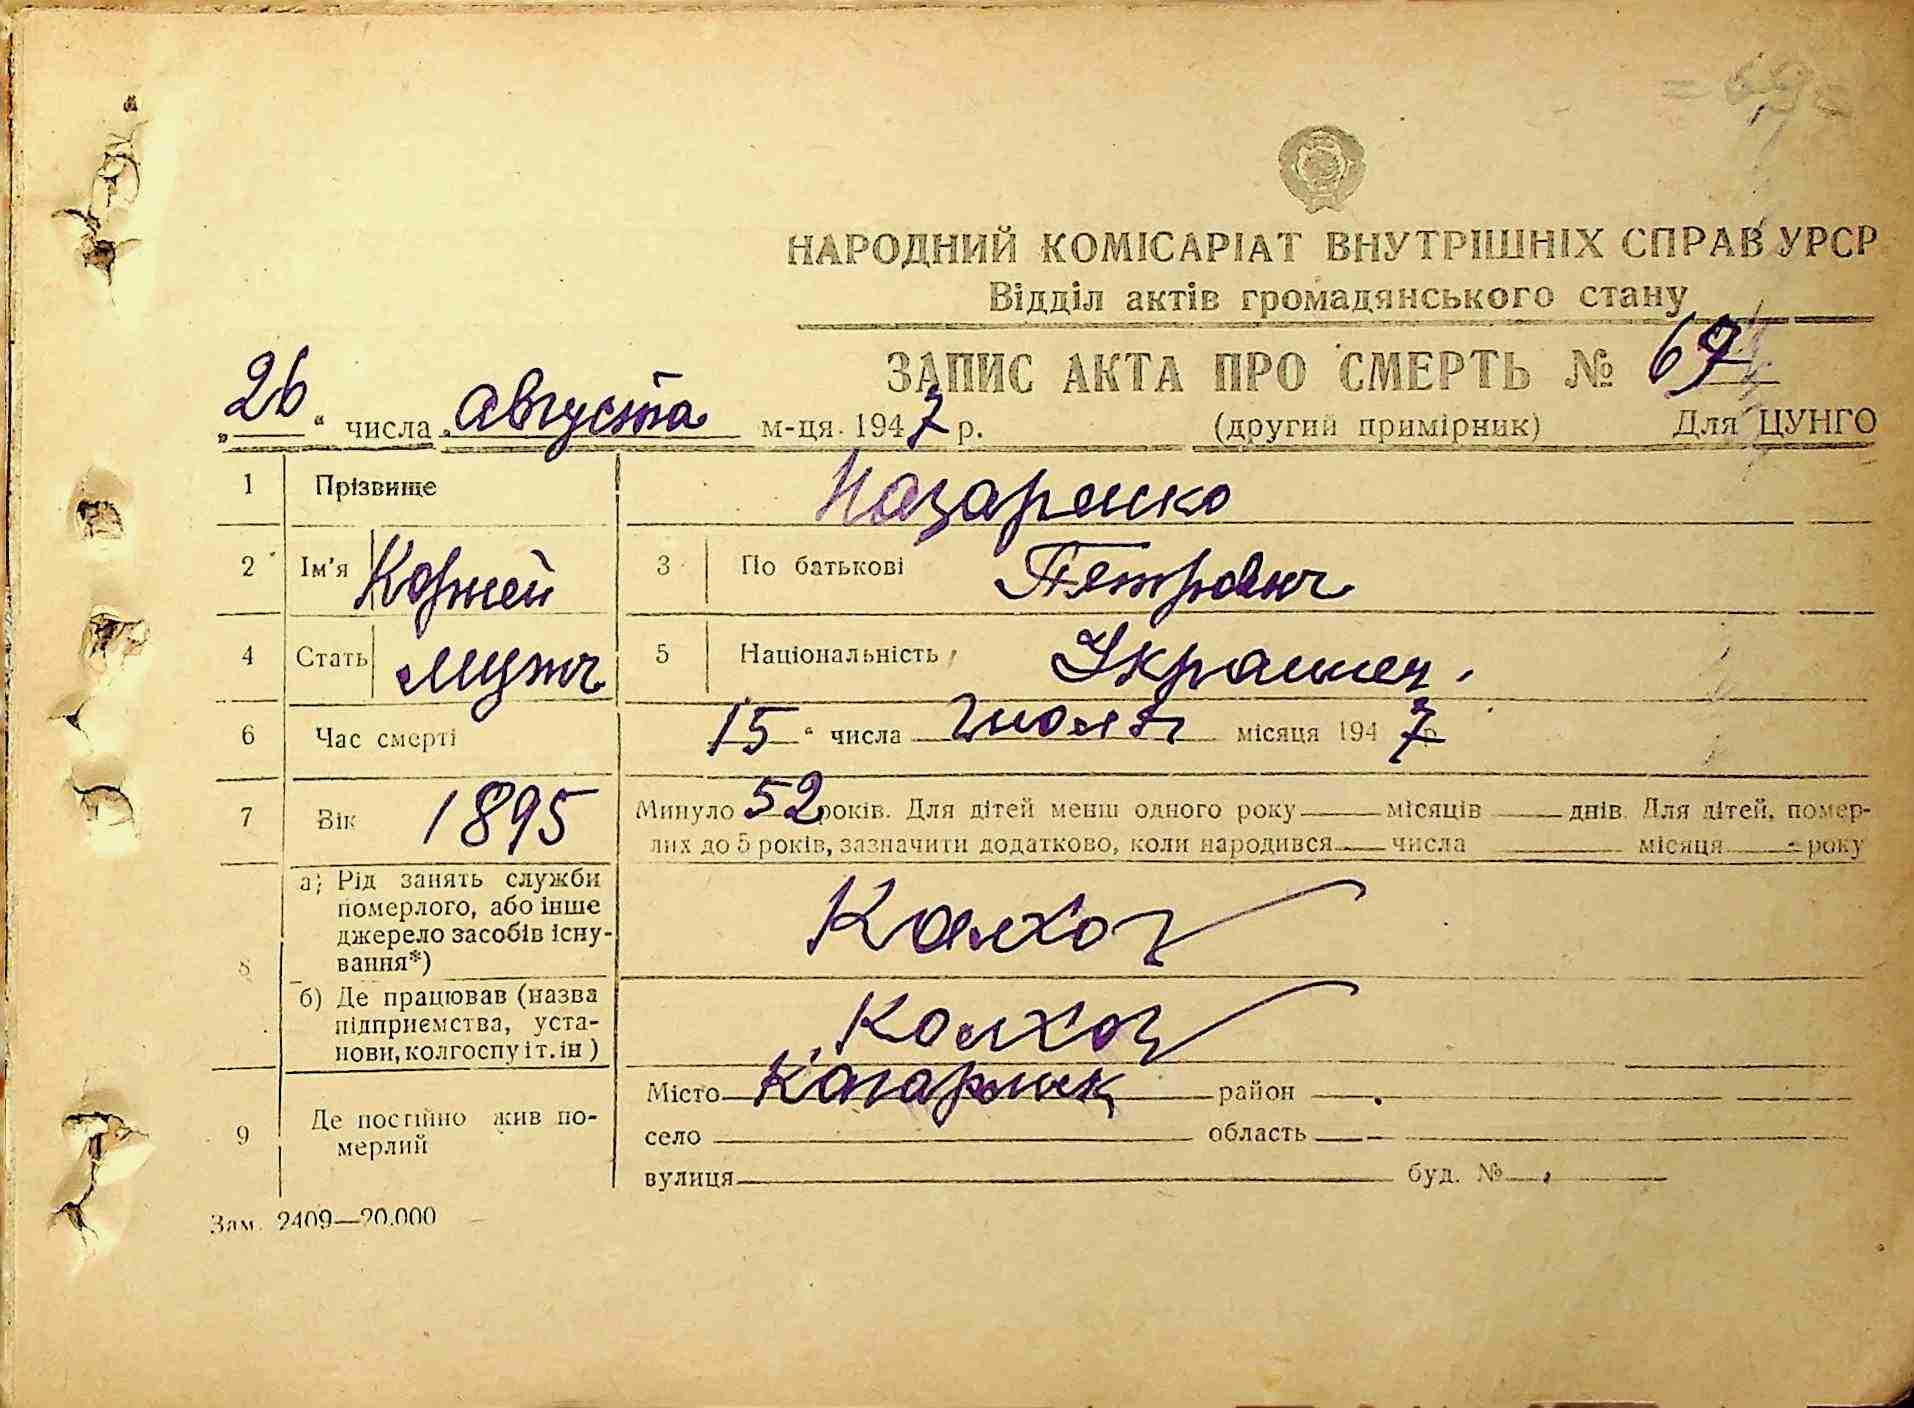 = 69 =
НАРОДНИЙ КОМІСАРІАТ ВНУТРІШНІХ СПРАВ УРСР
Відділ актів громадянського стану
ЗАПИС АКТА ПРО СМЕРТЬ № 69
„26“ числа августа м-ця 1947 р. (другий примірник) Для ЦУНГО
1 Прізвище Назаренко
2 Ім'я Корней 3 По батькові Петрович
4 Стать мужч 5 Національність Украинец.
6 Час смерті 15 “ числа Июля місяця 1947 р
7 Вік 1895 Минуло 52 років. Для дітей менш одного року — місяців — днів. Для дітей, помер-
лих до 5 років, зазначити додатково, коли народився — числа — місяця — року
8 а) Рід занять служби
померлого, або інше
джерело засобів існу-
вання*) Колхоз
б) Де працював (назва
підприємства, уста-
нови, колгоспу і т. ін) Колхоз
9 Де постійно жив по-
мерлий
Місто Кагарлик район —
село — область —
вулиця — буд. № —
Зам. 2409—20.000